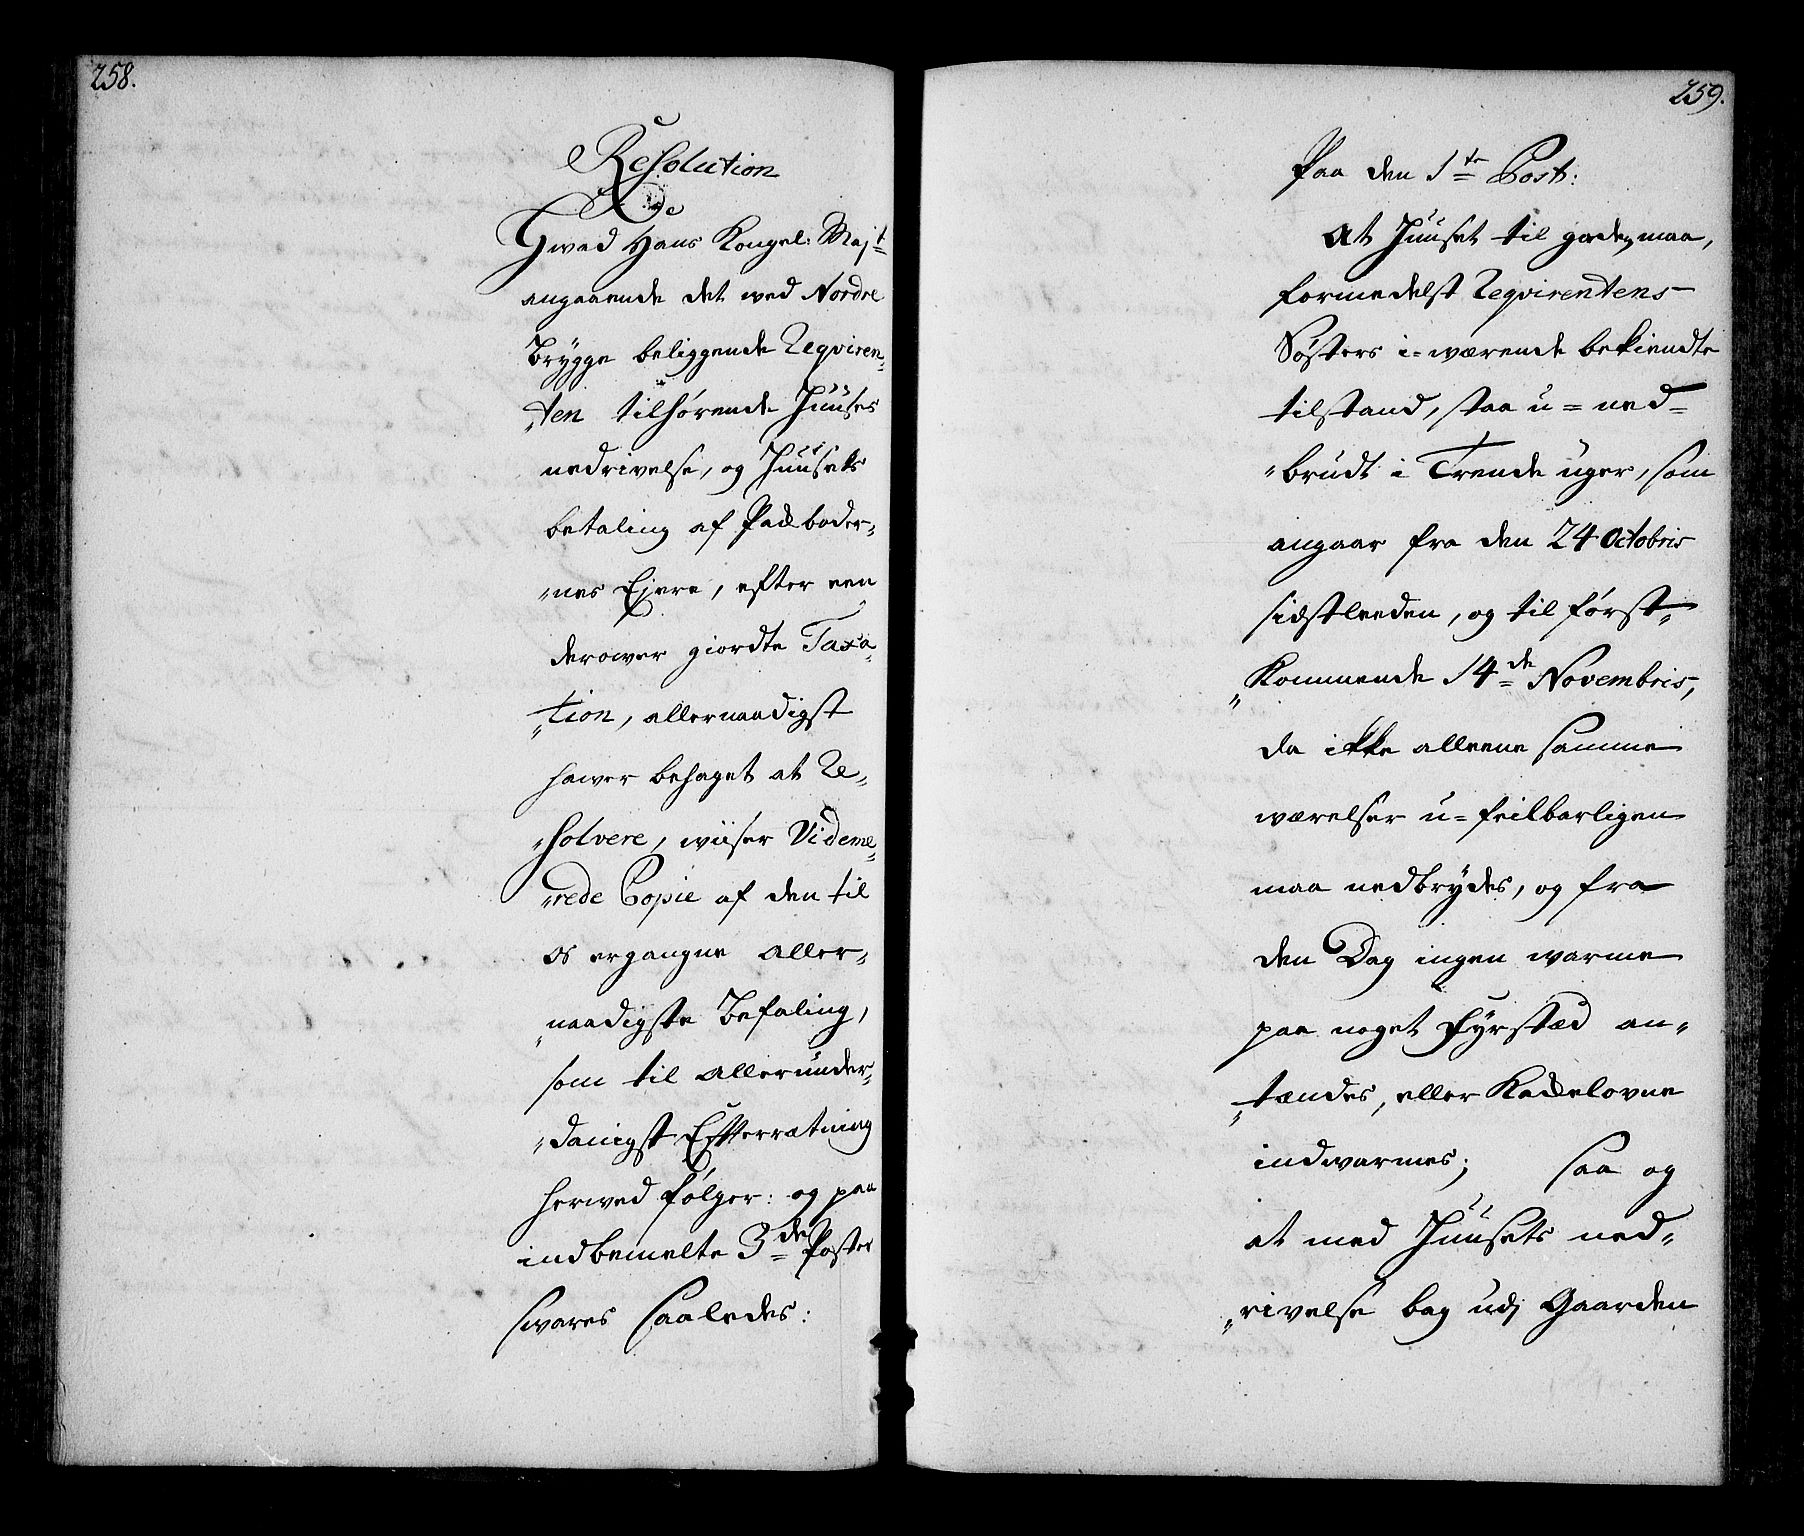 258.
Resolution
Hwad Hans Kongel: Majt
angaaende det wed Nordre
Brygge beliggende Reqviren„
„ten tilhørende Huuses
nedrivelse, og Huusets
betaling af Padeboder„
„nes Ejere, efter een
derower giordte Taxa„
„tion, allernaadigst
hawer behaget at Re„
„solvere, wiiser Videme„
„rede Copie af den til
os ergangne aller„
„naadigste Befaling,
som til allerunder„
„danigst Efterrætning
herwed følger: og paa
indbemelte 3de Poster
swares saaledes:
259.
Paa den 1te Post:
At Huuset til gaden maa,
formedelst Reqvirentens
Søsters i=wærende bekiendte
tilstand, staa u=ned=
„brudt i Trende uger, som
angaar fra den 24 Octobris
sidstleeden, og til først„
„Kommende 14de Novembris,
da ikke alleene samme
wærelser u=feilbarligen
maa nedbrydes, og fra
den Dag ingen warme
paa noget Fyrstæd an„
„tændes, eller Kackelovne
indwarmes; saa og
at med Huusets ned„
„rivelse bag udj Gaarden